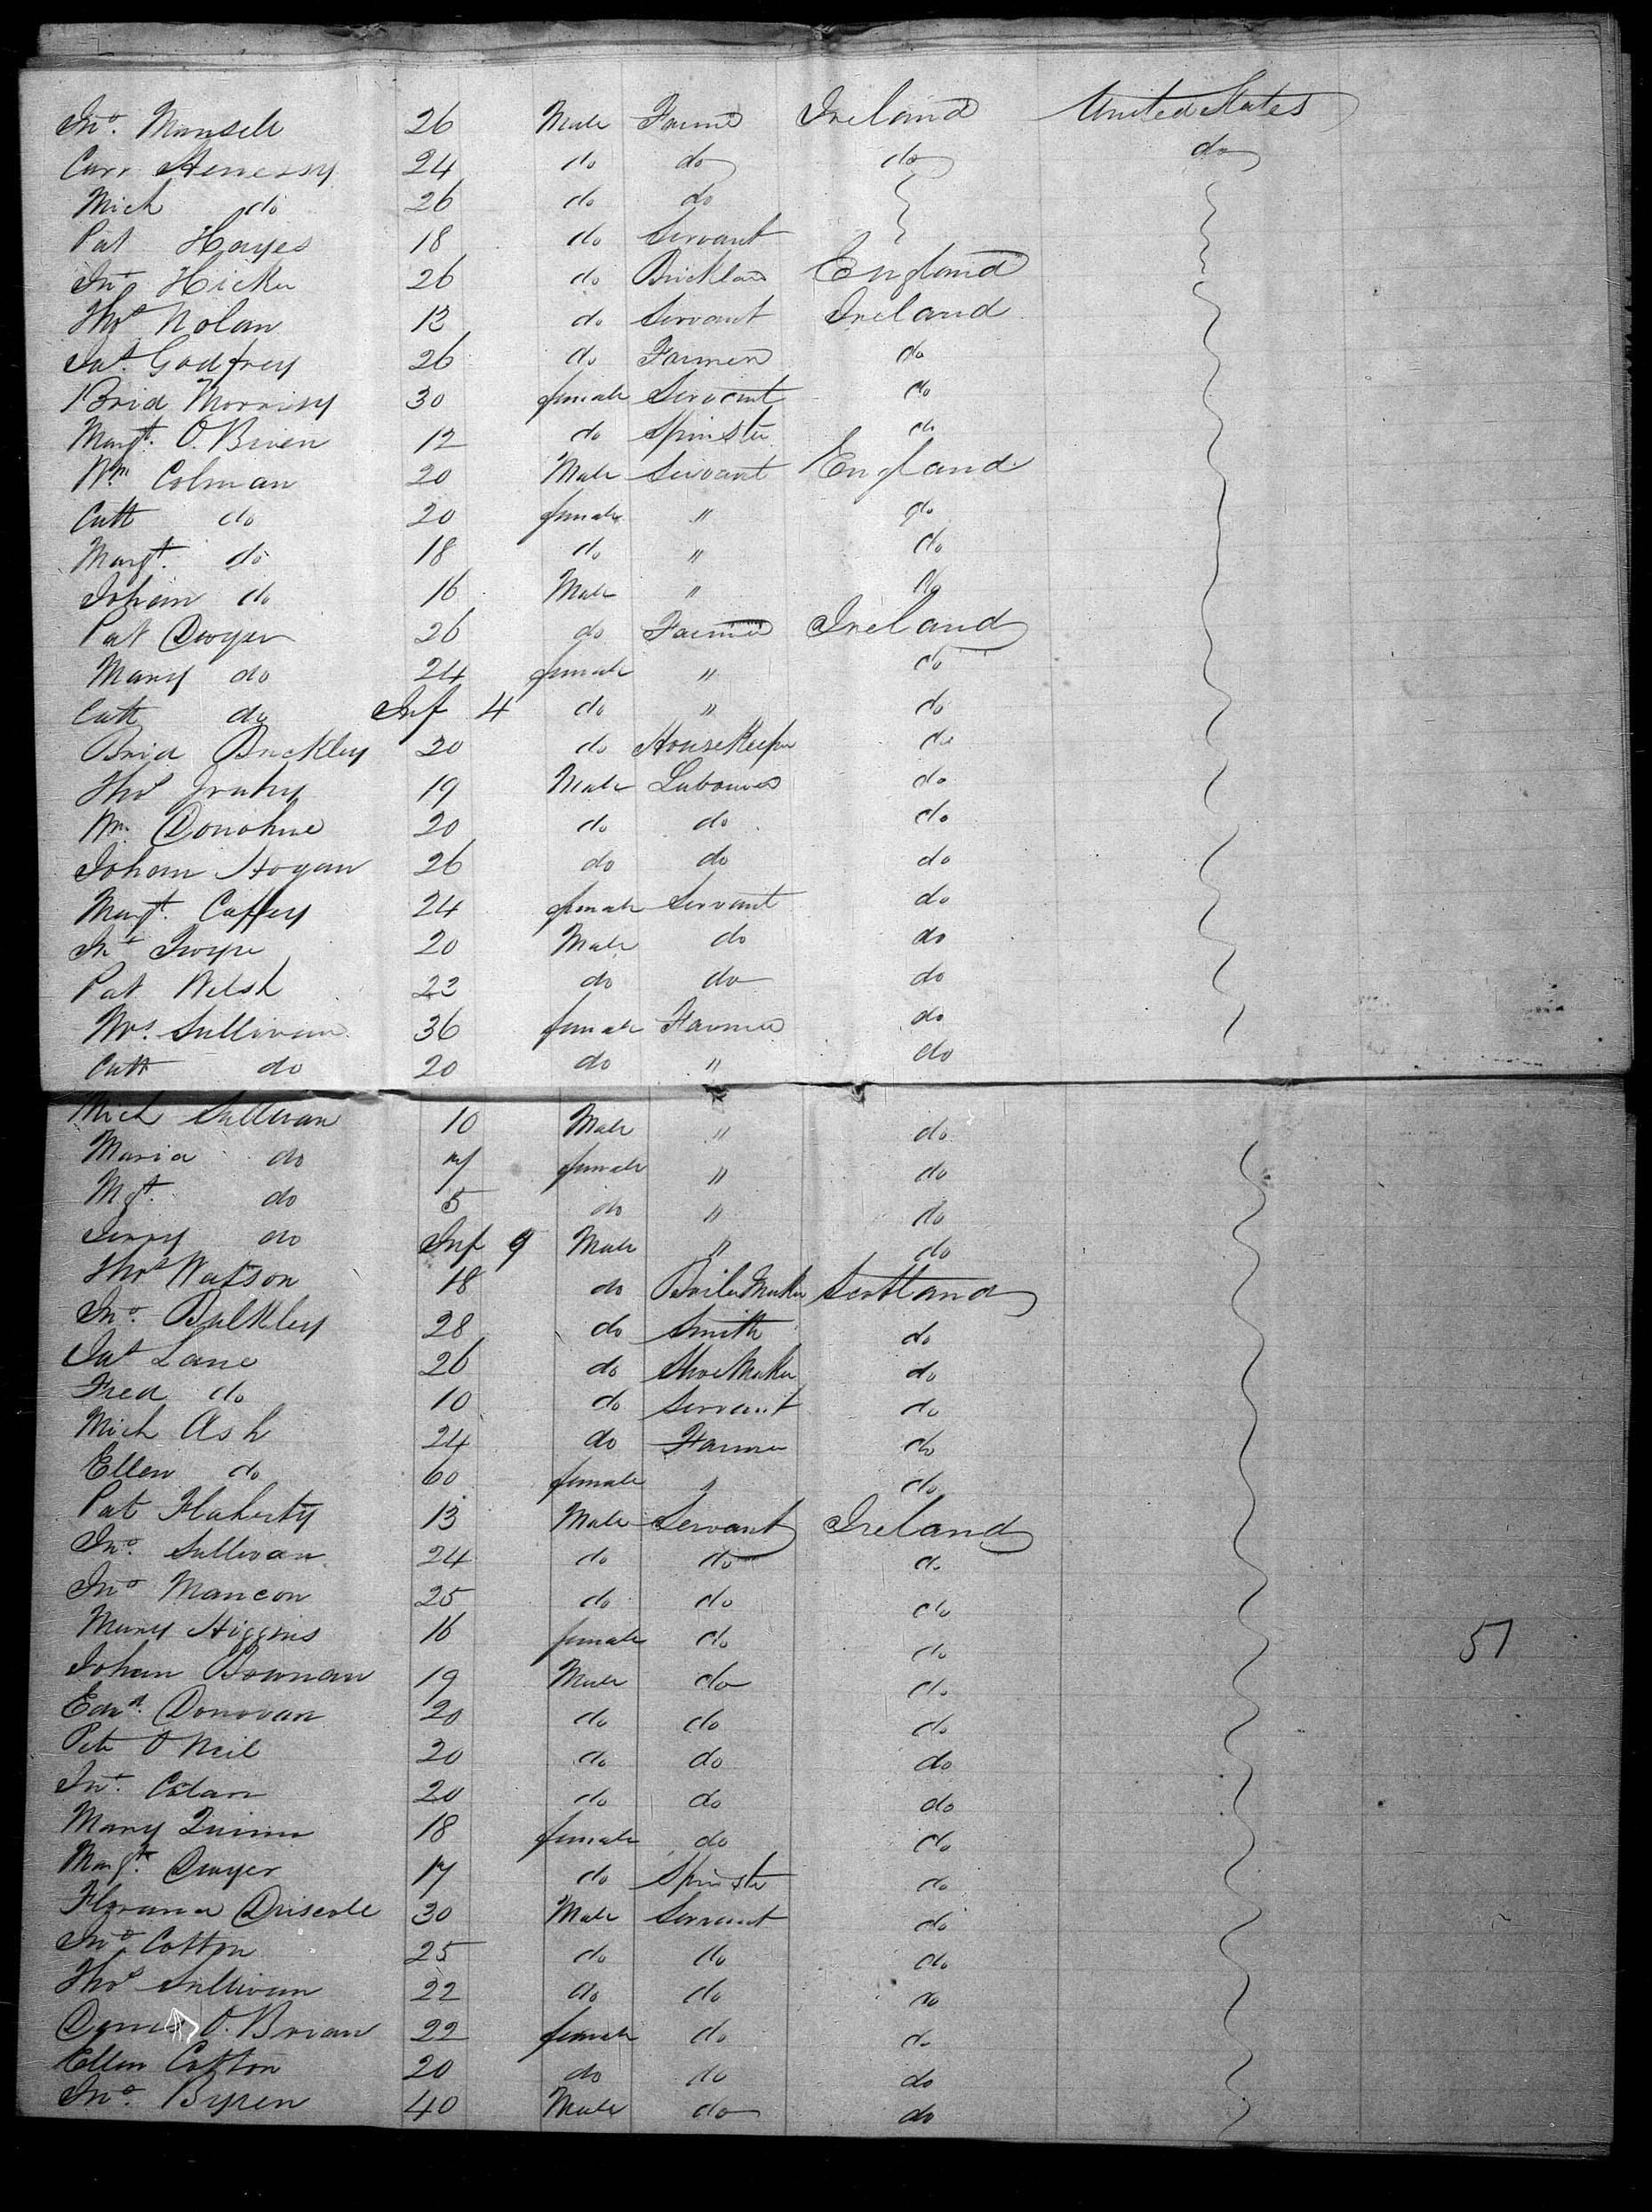 Jno. Mansell 26 Male Farmer Ireland United States
Carr Hennessy 24 do do do do
Mich do 26 do do
Pat Hayes 18 do Servant
Jno Hickie 26 do Bricklaer England
Thos Nolan 12 do Servant Ireland
Jas Godfrey 26 do Farmer do
Brid Morrisy 30 female Servant do
Margt. O. Brien 12 do Spinster do
Wm Colman 20 Male Servant England
Cath do 20 female " do
Margt. do 18 do " do
Johan do 16 Male " do
Pat Dwyer 26 do Farmer Ireland
Mary do 24 female " do
Cath do Inf 4 do " do
Brid Buckley 20 do HouseKeeper do
Thos 19 Male Labourer do
Wm. Donohue 20 do do do
Johan Hogan 26 do do do
Margt. Caffery 24 female Servant do
Jno 20 Male do do
Pat Welsh 22 do do do
Mrs. Sullivan 36 female Farmer do
Cath do 20 do " do
Mich Sullivan 10 Male " do
Maria do 7 female " do
Mgt. do 5 do " do
Jerry do Inf 9 Male " do
Thos Watson 18 do BoilerMaker Scotland
Jno. Bulkley 28 do Smith do
Jas Lane 26 do ShoeMaker do
Fred do 10 do Servant do
Mich Ash 24 do Farmer do
Ellen do 60 female " do
Pat Flaherty 13 Male Servant Ireland
Jno. Sullivan 24 do do do
Jno Mancon 25 do do do
Mary Higgins 16 female do do 51
Johan Bownan 19 Male do do
Edwd. Donovan 20 do do do
Pete O Neil 20 do do do
Jno. Colan 20 do do do
Mary Quinn 18 female do do
Margt. Dwyer 17 do Spinster do
Driscole 30 Male Servant do
Jno Cotton 25 do do do
Thos Sullivan 22 do do do
O. Brian 22 female do do
Ellen Cotton 20 do do do
Jno. Byren 40 Male do do